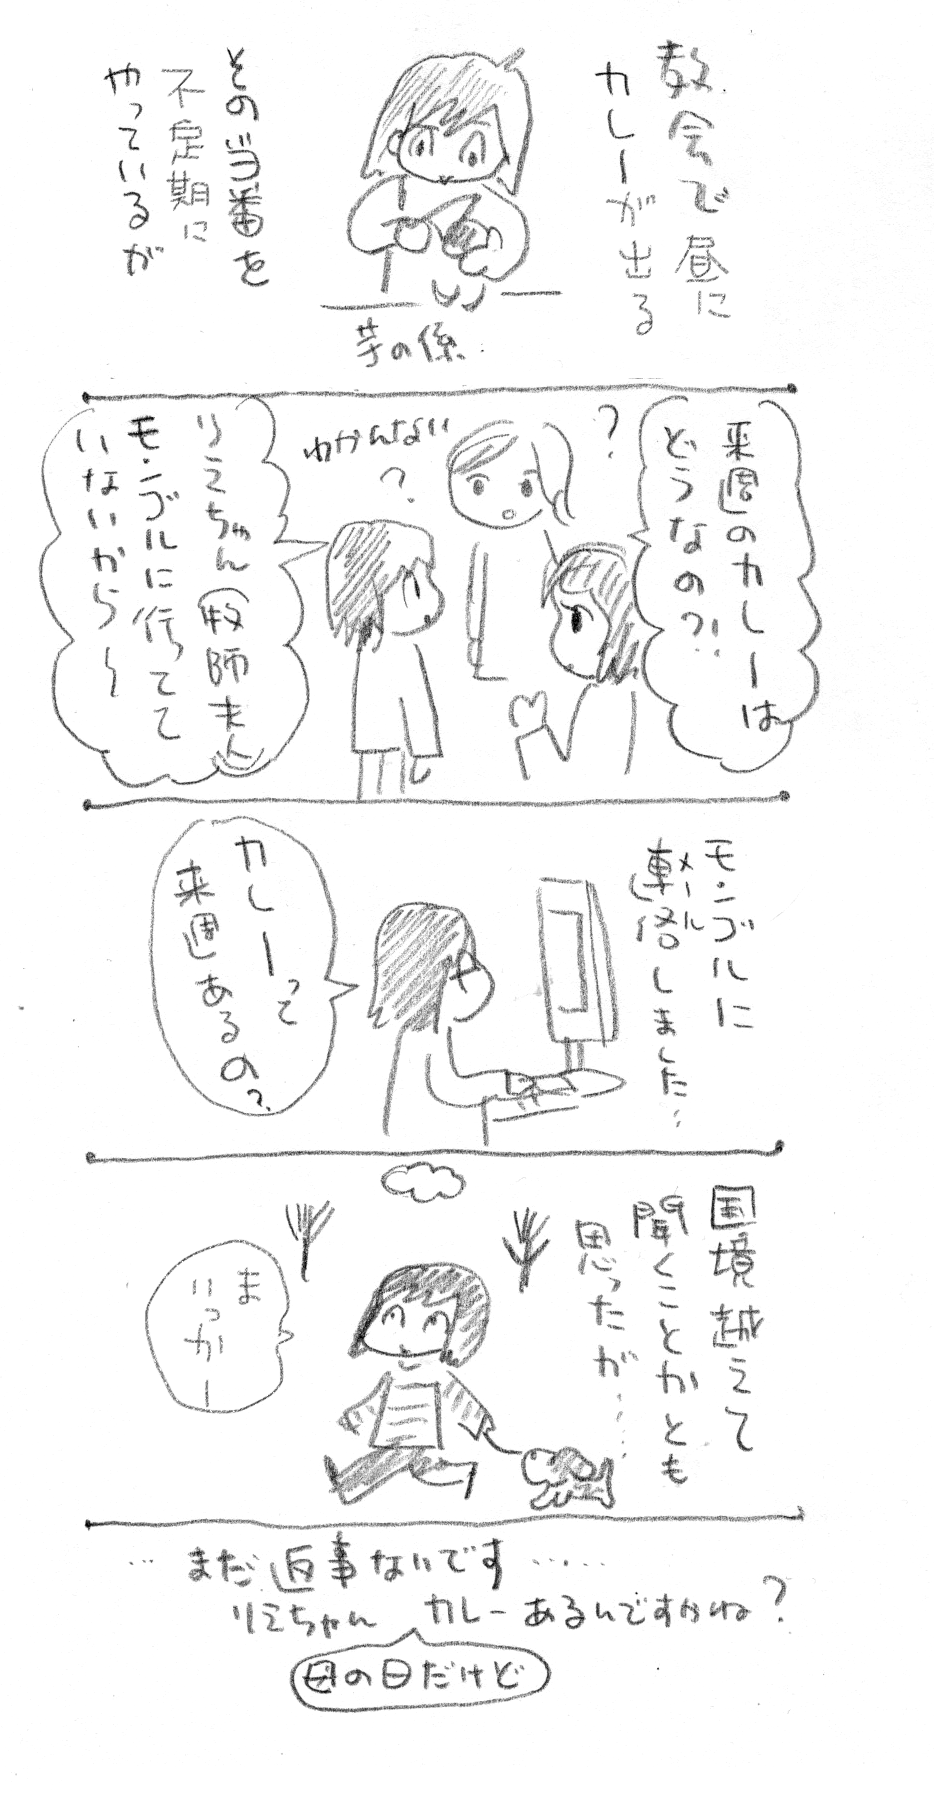 教会で昼に
カレーが出る
その当番を
不定期に
やっているが
芋の係
来週のカレーは
どうなの?!
?
わかんない
?
りえちゃん(牧師夫人)
モンゴルに行ってて
いないから〜
モンゴルに
メール
連絡しました…
カレーって
来週あるの?
国境越えて
聞くことかとも
思ったが……
ま
いっかー
…まだ返事ないです……
りえちゃん カレーあるんですかね?
母の日だけど